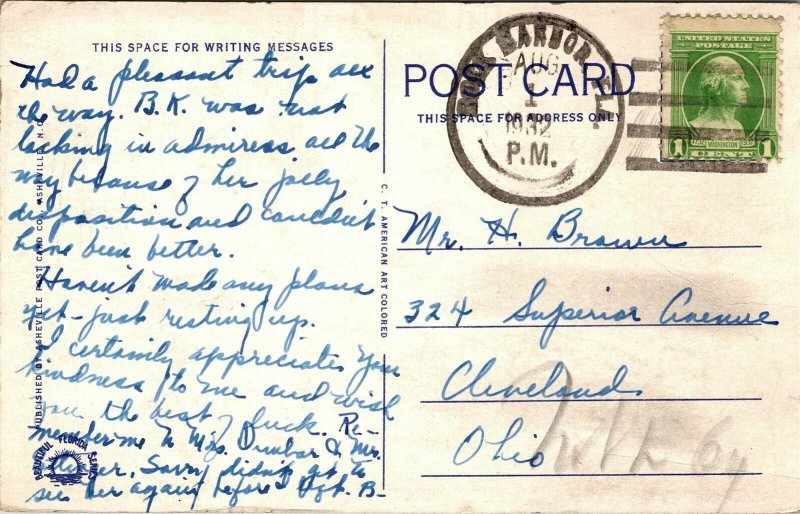 THIS SPACE FOR WRITING MESSAGES
Had a pleasant trip all
the way. B.K. was not
lacking in admirers all the
way because of her jolly
disposition and couldn't
have been better.
Haven't made any plans
yet - just resting up.
I certainly appreciate your
kindness to me and wish
you the best of luck. Re-
member me to Mrs. Dunbar & Mr.
Sorry didn't get to
see her again before I left. B-
PUBLISHED BY ASHEVILLE POST CARD CO., ASHEVILLE, N.C.
BEAUTIFUL FLORIDA SERIES
C. T. AMERICAN ART COLORED
POST CARD
THIS SPACE FOR ADDRESS ONLY
HARBOR, FLA.
AUG
1
1932
P.M.
UNITED STATES
POSTAGE
1732 WASHINGTON 1932
1 CENT 1
Mr. H. Brown
324 Superior Avenue
Cleveland
Ohio